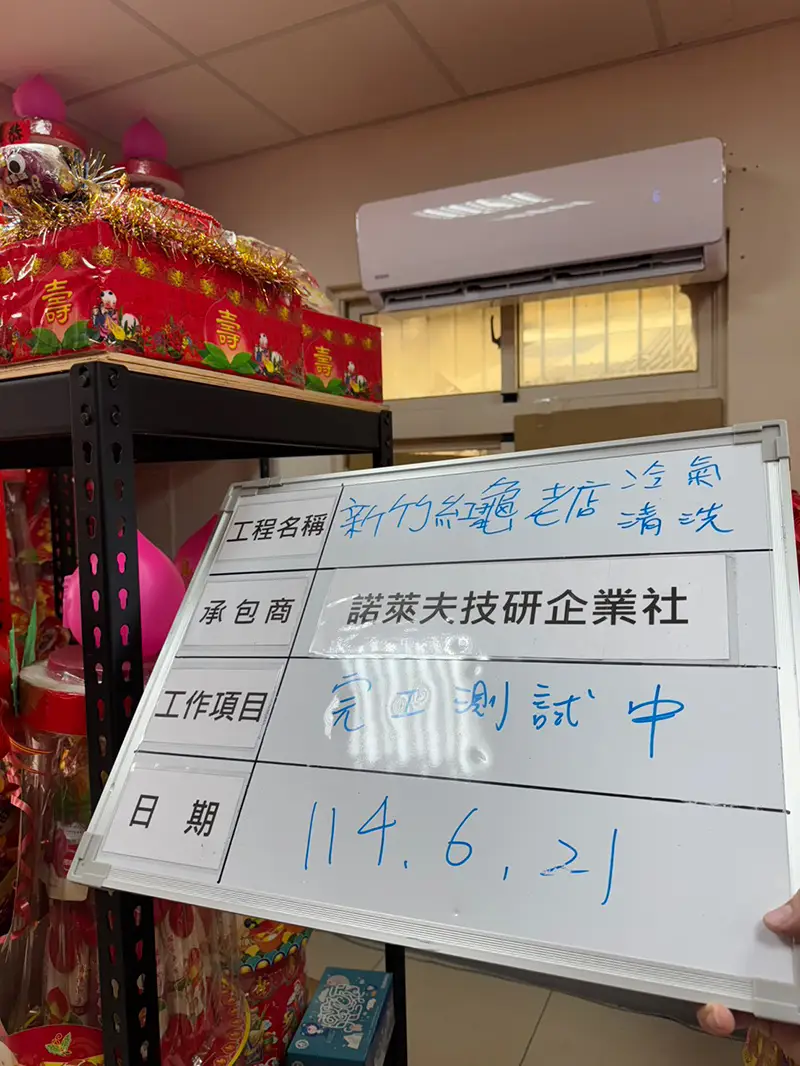 壽
壽
壽
工程名稱 新竹紅龜老店冷氣清洗
承包商 諾萊夫技研企業社
工作項目 完工測試中
日期 114.6.21